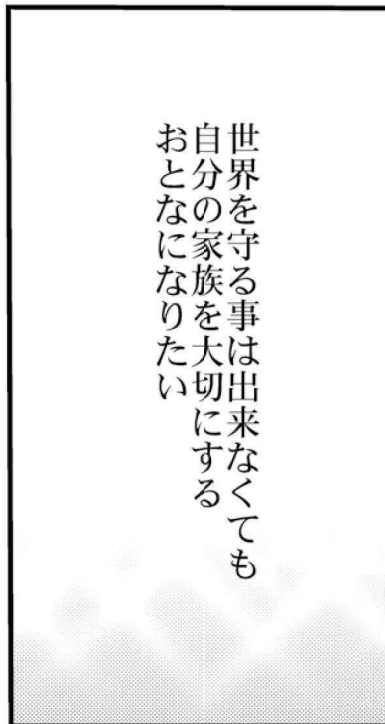 世界を守る事は出来なくても
自分の家族を大切にする
おとなになりたい